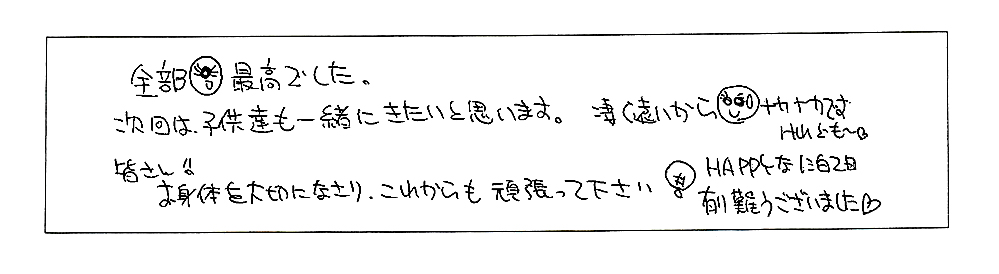 全部最高でした。
次回は、子供達も一緒にきたいと思います。 凄く遠いから ナカナカです
けども〜
皆さん!!
お身体を大切になさり、これからも頑張って下さい
HAPPYな2泊2日
有難うございました♡